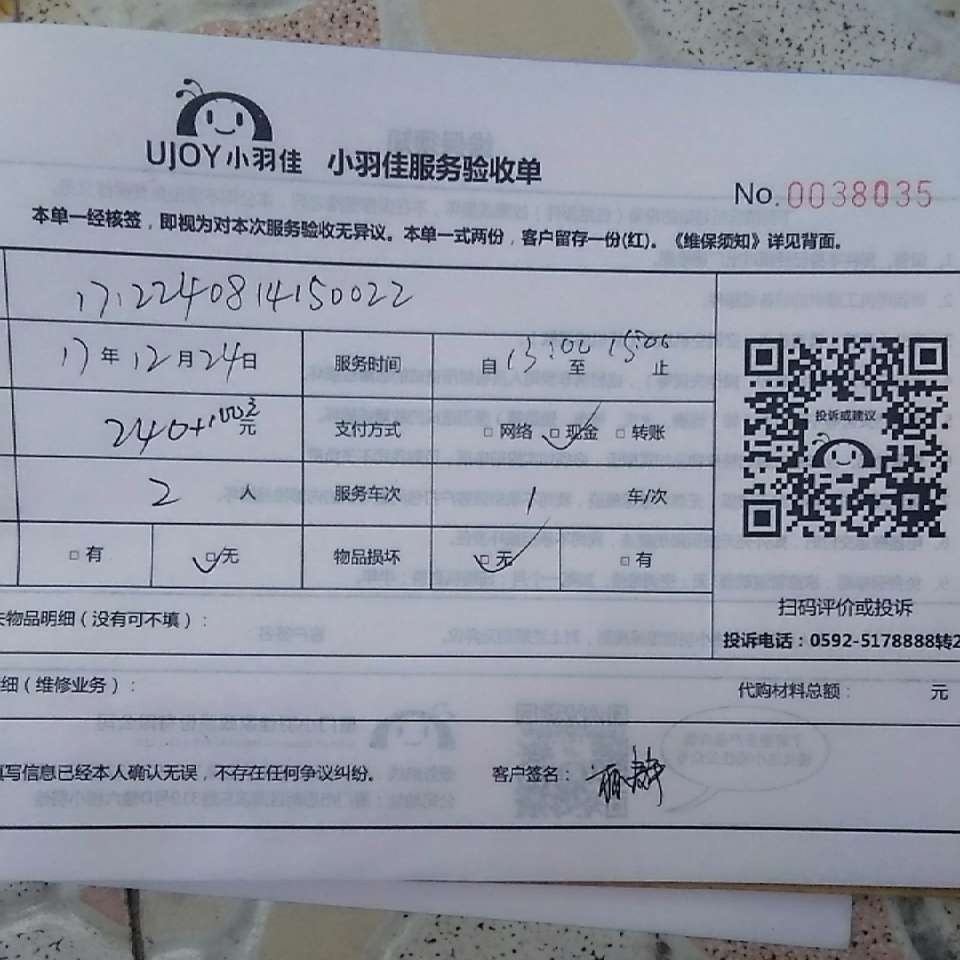 UJOY小羽佳 小羽佳服务验收单
No.0038035
本单一经核签，即视为对本次服务验收无异议。本单一式两份，客户留存一份(红)。《维保须知》详见背面。
1712240814150022
17年12月24日 服务时间 自13:00至15:00止
240+100元元 支付方式 □网络 □现金 □转账
投诉或建议
2人 服务车次 1车/次
□有 □无 物品损坏 □无 □有
物品明细（没有可不填）：
扫码评价或投诉
投诉电话：0592-5178888转2
细（维修业务）： 代购材料总额： 元
填写信息已经本人确认无误，不存在任何争议纠纷。 客户签名：